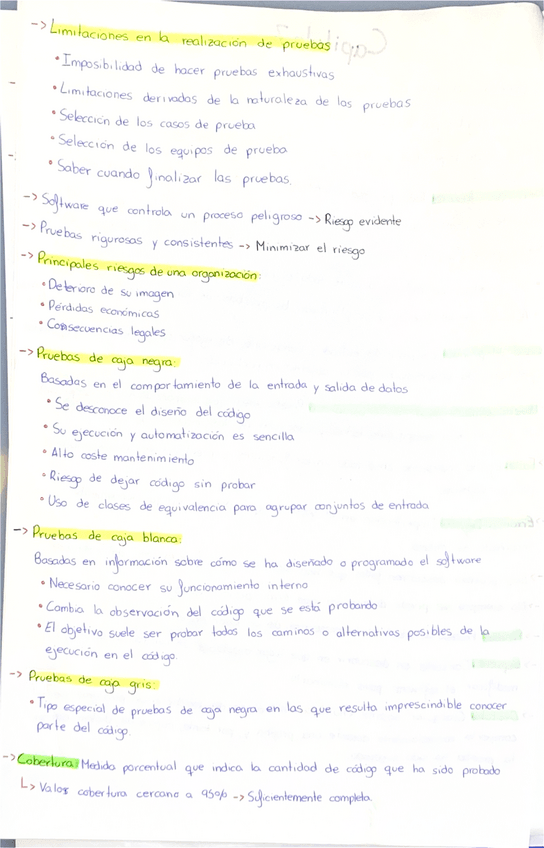 -> Limitaciones en la realización de pruebas
• Imposibilidad de hacer pruebas exhaustivas
• Limitaciones derivadas de la naturaleza de las pruebas
• Selección de los casos de prueba
• Selección de los equipos de prueba
• Saber cuando finalizar las pruebas.
-> Software que controla un proceso peligroso -> Riesgo evidente
-> Pruebas rigurosas y consistentes -> Minimizar el riesgo
-> Principales riesgos de una organización:
• Deterioro de su imagen
• Pérdidas económicas
• Consecuencias legales
-> Pruebas de caja negra:
Basadas en el comportamiento de la entrada y salida de datos
• Se desconoce el diseño del código
• Su ejecución y automatización es sencilla
• Alto coste mantenimiento
• Riesgo de dejar código sin probar
• Uso de clases de equivalencia para agrupar conjuntos de entrada
-> Pruebas de caja blanca:
Basadas en información sobre cómo se ha diseñado o programado el software
• Necesario conocer su funcionamiento interno
• Cambia la observación del código que se está probando
• El objetivo suele ser probar todos los caminos o alternativas posibles de la
ejecución en el código.
-> Pruebas de caja gris:
• Tipo especial de pruebas de caja negra en las que resulta imprescindible conocer
parte del código.
-> Cobertura: Medida porcentual que indica la cantidad de código que ha sido probado
↳ Valor cobertura cercano a 95% -> Suficientemente completa